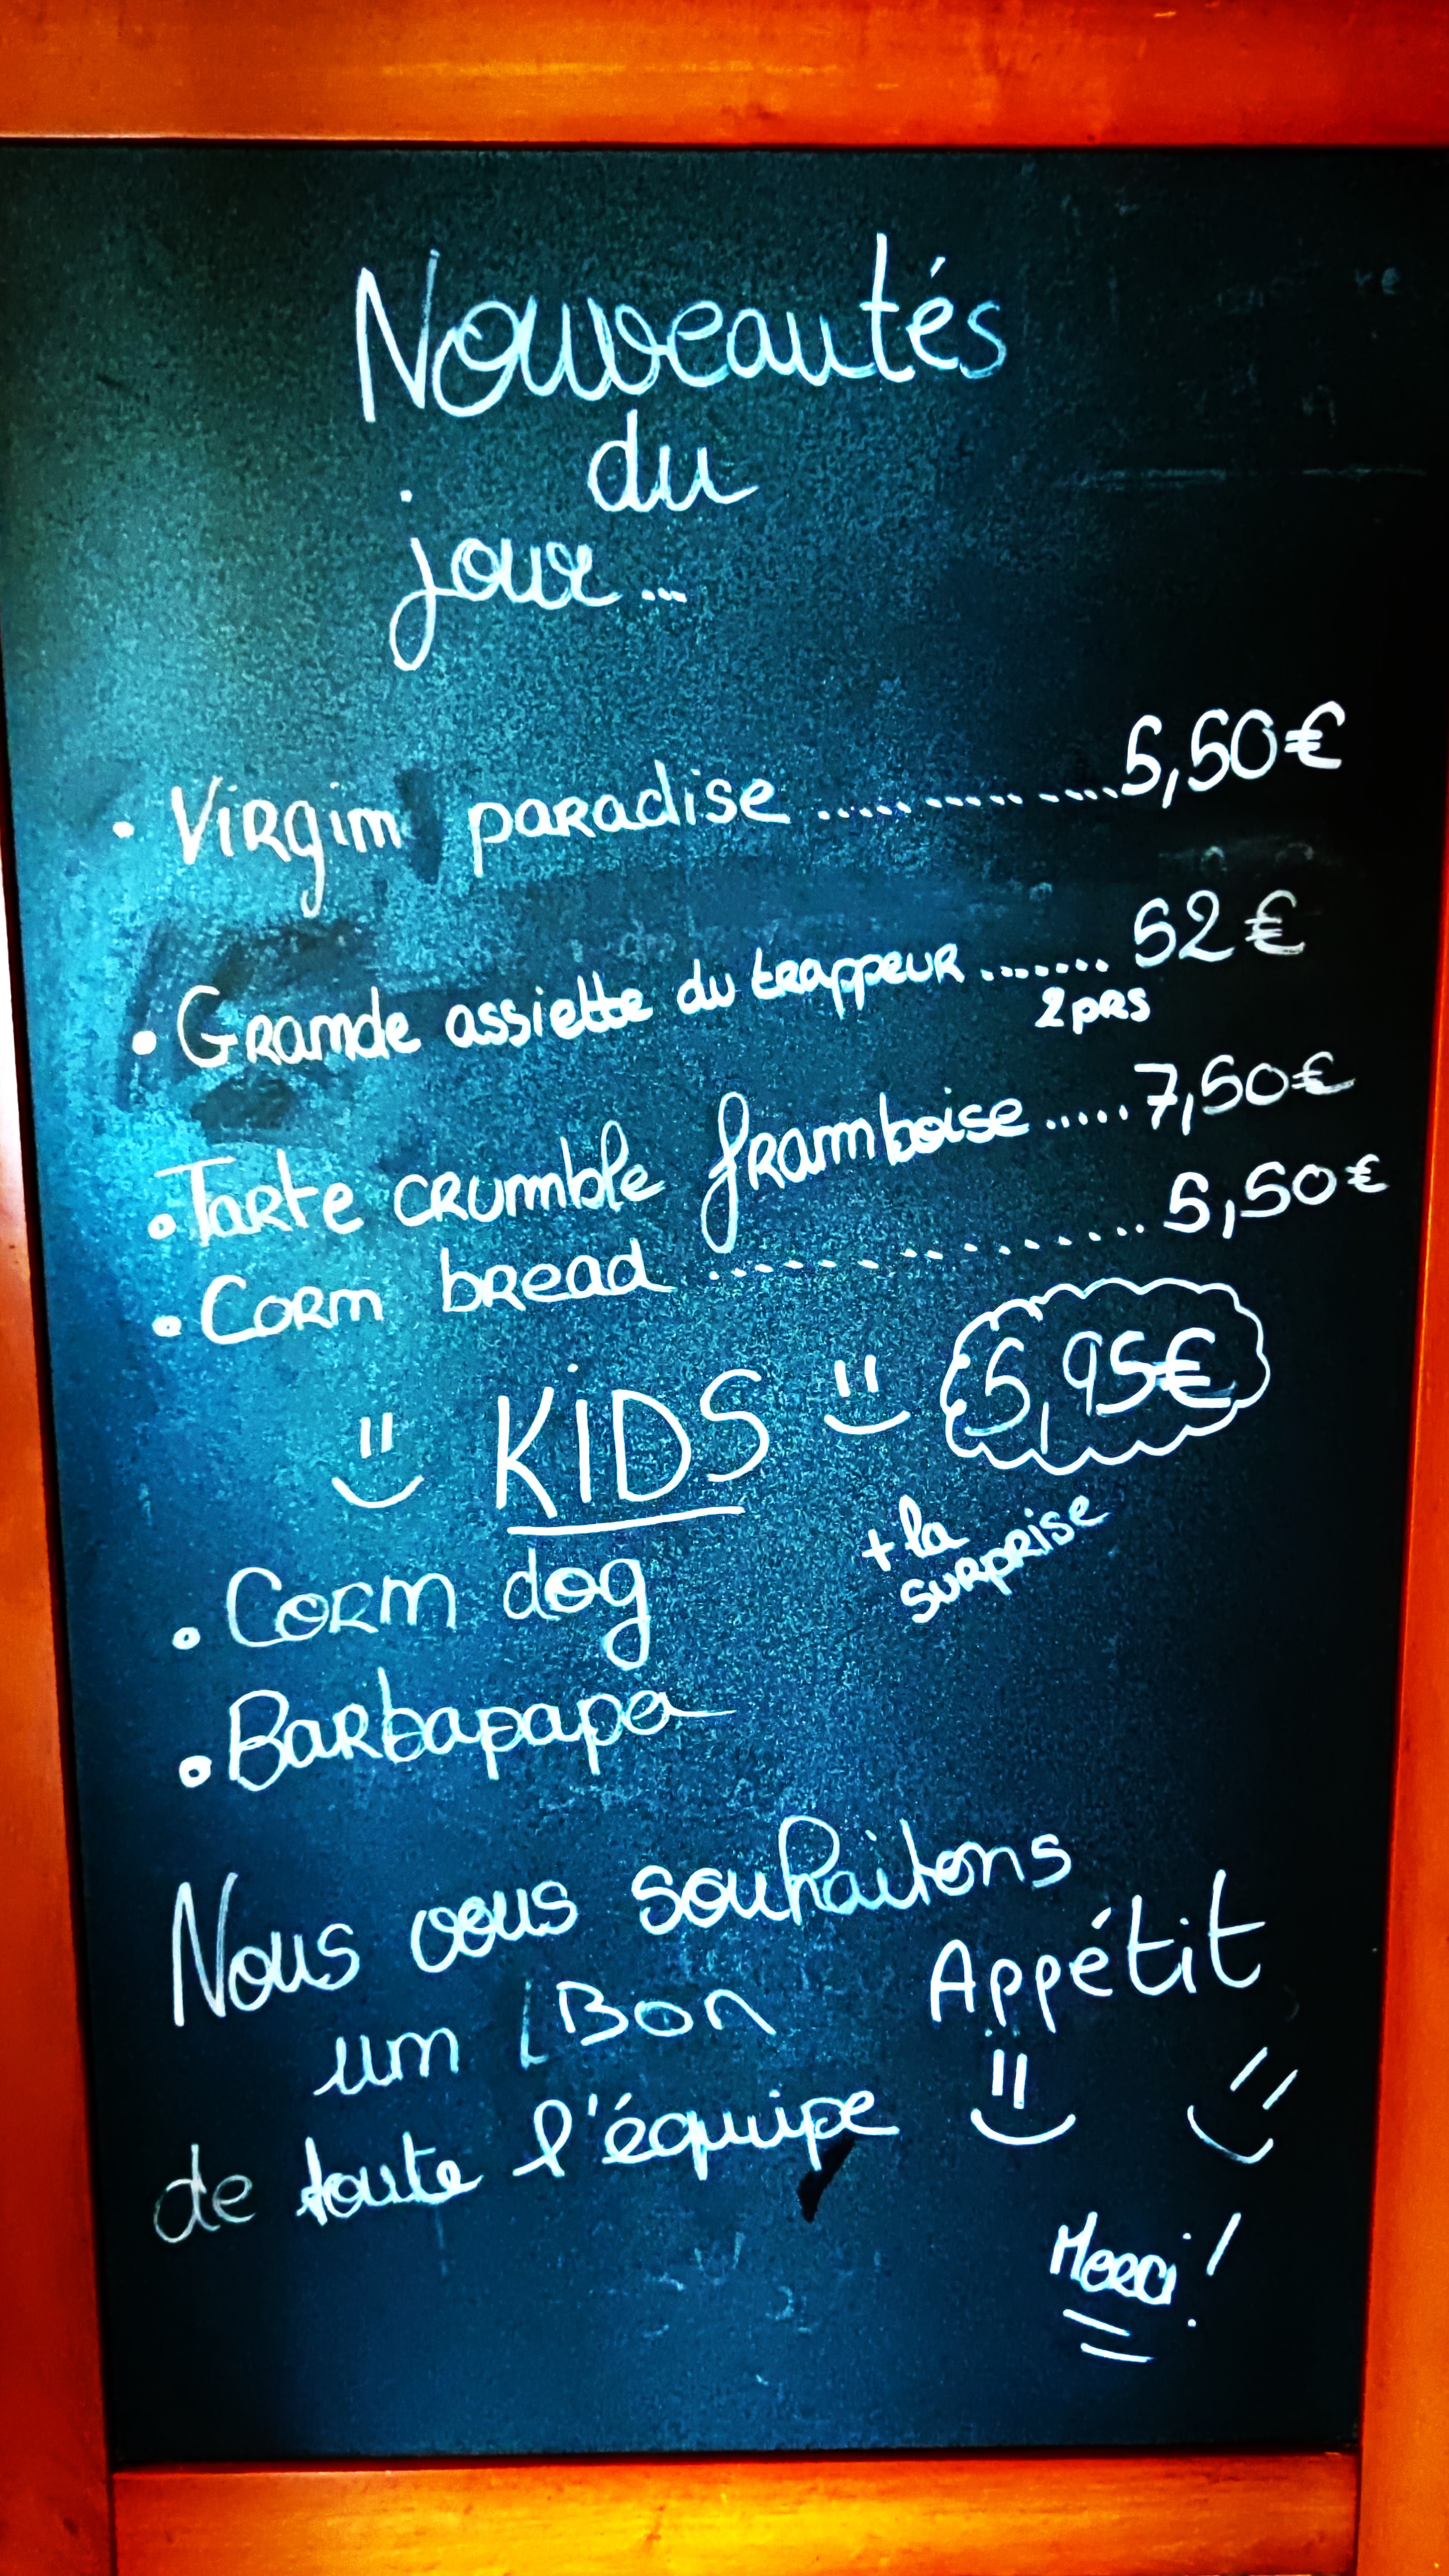 Nouveautés
du
jour...
• Virgin paradise ............... 5,50€
• Grande assiette du trappeur ....... 52€
2 prs
• Tarte crumble framboise ..... 7,50€
• Corn bread ............... 5,50€
KiDS 5,95€
+ la
surprise
• Corn dog
• Barbapapa
Nous vous souhaitons
un Bon Appétit
de toute l'équipe
Merci !